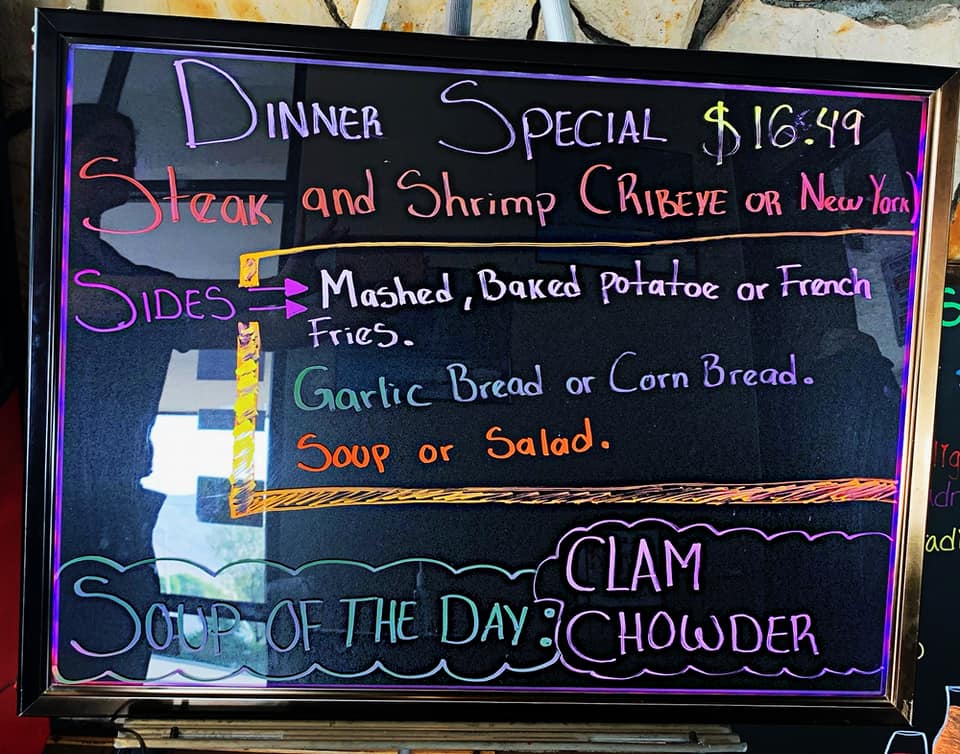 Dinner Special $16.49
Steak and Shrimp (Ribeye or New York)
Sides Mashed, Baked potatoe or French
Fries.
Garlic Bread or Corn Bread.
Soup or Salad.
Soup of the Day: Clam
Chowder